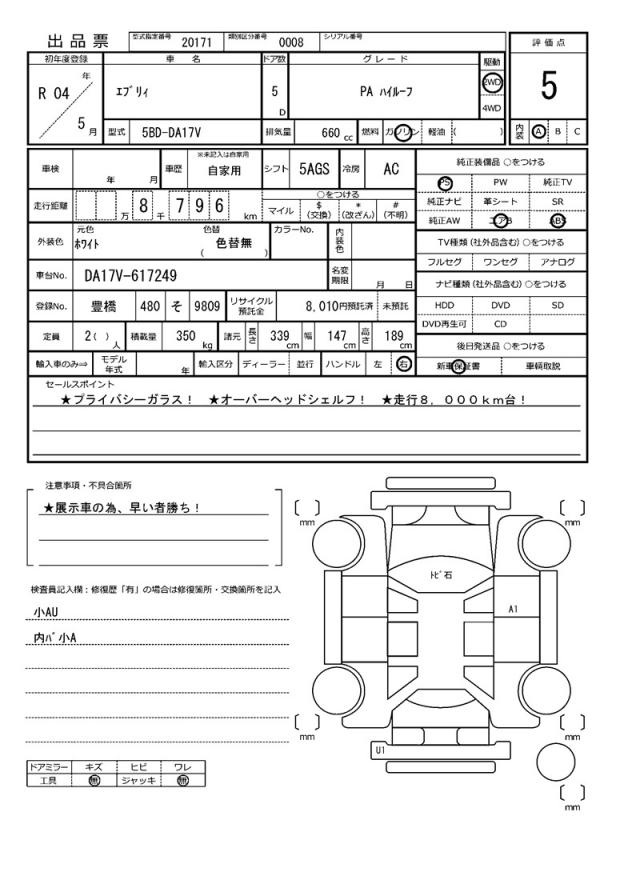 出品票
型式指定番号 20171 類別区分番号 0008 シリアル番号
評価点
5
初年度登録 車名 ドア数 グレード 駆動
R 04 年 5 月
エブリィ 5 D PA ハイルーフ 2WD
4WD
型式 5BD-DA17V 排気量 660 cc 燃料 ガソリン 軽油 ( )
内装 A B C
車検 年 月 車歴 ※未記入は自家用 自家用 シフト 5AGS 冷房 AC
走行距離 万 8 千 7 9 6 km
○をつける
マイル $(交換) *(改ざん) #(不明)
外装色 元色 ホワイト 色替 ( 色替無 ) カラーNo. 内装色
車台No. DA17V-617249 名変期限 月 日
登録No. 豊橋 480 そ 9809 リサイクル預託金 8,010円預託済 未預託
定員 2( )人 積載量 350 kg 諸元 長さ 339 cm 幅 147 cm 高さ 189 cm
輸入車のみ⇒ モデル年式 年 輸入区分 ディーラー 並行 ハンドル 左 右
純正装備品 ○をつける
PS PW 純正TV
純正ナビ 革シート SR
純正AW エアB ABS
TV種類 (社外品含む) ○をつける
フルセグ ワンセグ アナログ
ナビ種類 (社外品含む) ○をつける
HDD DVD SD
DVD再生可 CD
後日発送品 ○をつける
新車保証書 車輌取説
セールスポイント
★プライバシーガラス! ★オーバーヘッドシェルフ! ★走行8,000km台!
注意事項・不具合箇所
★展示車の為、早い者勝ち!
検査員記入欄:修復歴「有」の場合は修復箇所・交換箇所を記入
小AU
内バ小A
ドアミラー キズ ヒビ ワレ
工具 無 ジャッキ 無
[ ] mm
[ ] mm
トビ石
A1
[ ] mm
[ ] mm
U1
[ ] mm